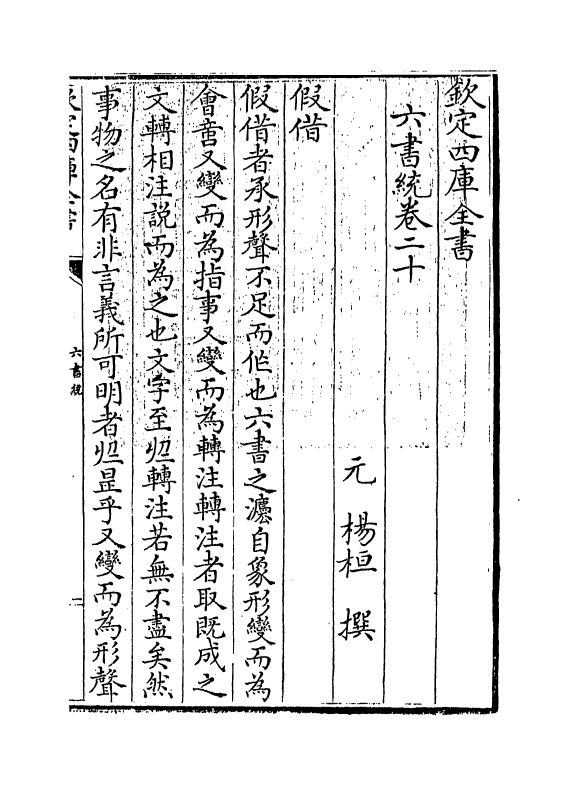 欽定四庫全書
六書統卷二十
元 楊桓 撰
假借
假借者承形聲不足而作也六書之灋自象形變而為
會意又變而為指事又變而為轉注轉注者取既成之
文轉相注說而為之也文字至㱏轉注若無不盡矣然
事物之名有非言義所可明者㱏是乎又變而為形聲
欽定四庫全書
六書統
一